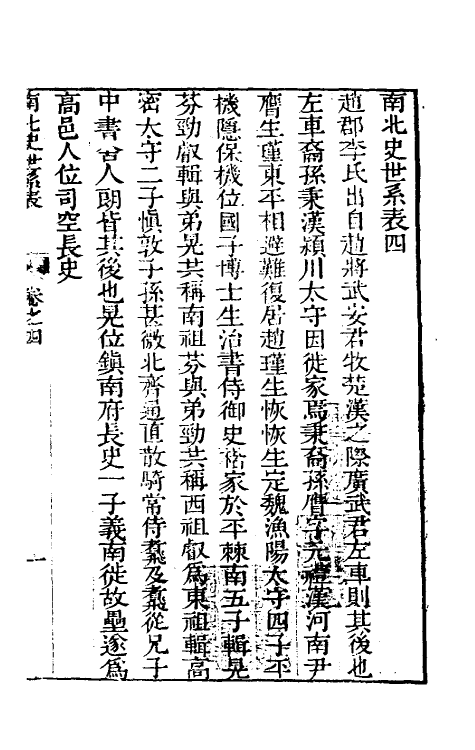 南北史世系表四
趙郡李氏出自趙將武安君牧楚漢之際廣武君左車則其後也
左車裔孫秉漢潁川太守因徙家焉秉裔孫膺字元禮漢河南尹
膺生瑾東平相避難復居趙瑾生恢恢生定魏漁陽太守四子平
機隱保機位國子博士生治書侍御史楷家於平棘南五子輯晃
芬勁叡輯與弟晃共稱南祖芬與弟勁共稱西祖叡爲東祖輯高
密太守二子慎敦子孫甚微北齊通直散騎常侍羲及羲從兄子
中書舍人朗皆其後也晃位鎮南府長史一子義南徙故壘遂爲
高邑人位司空長史
南北史世系表
卷之四
一